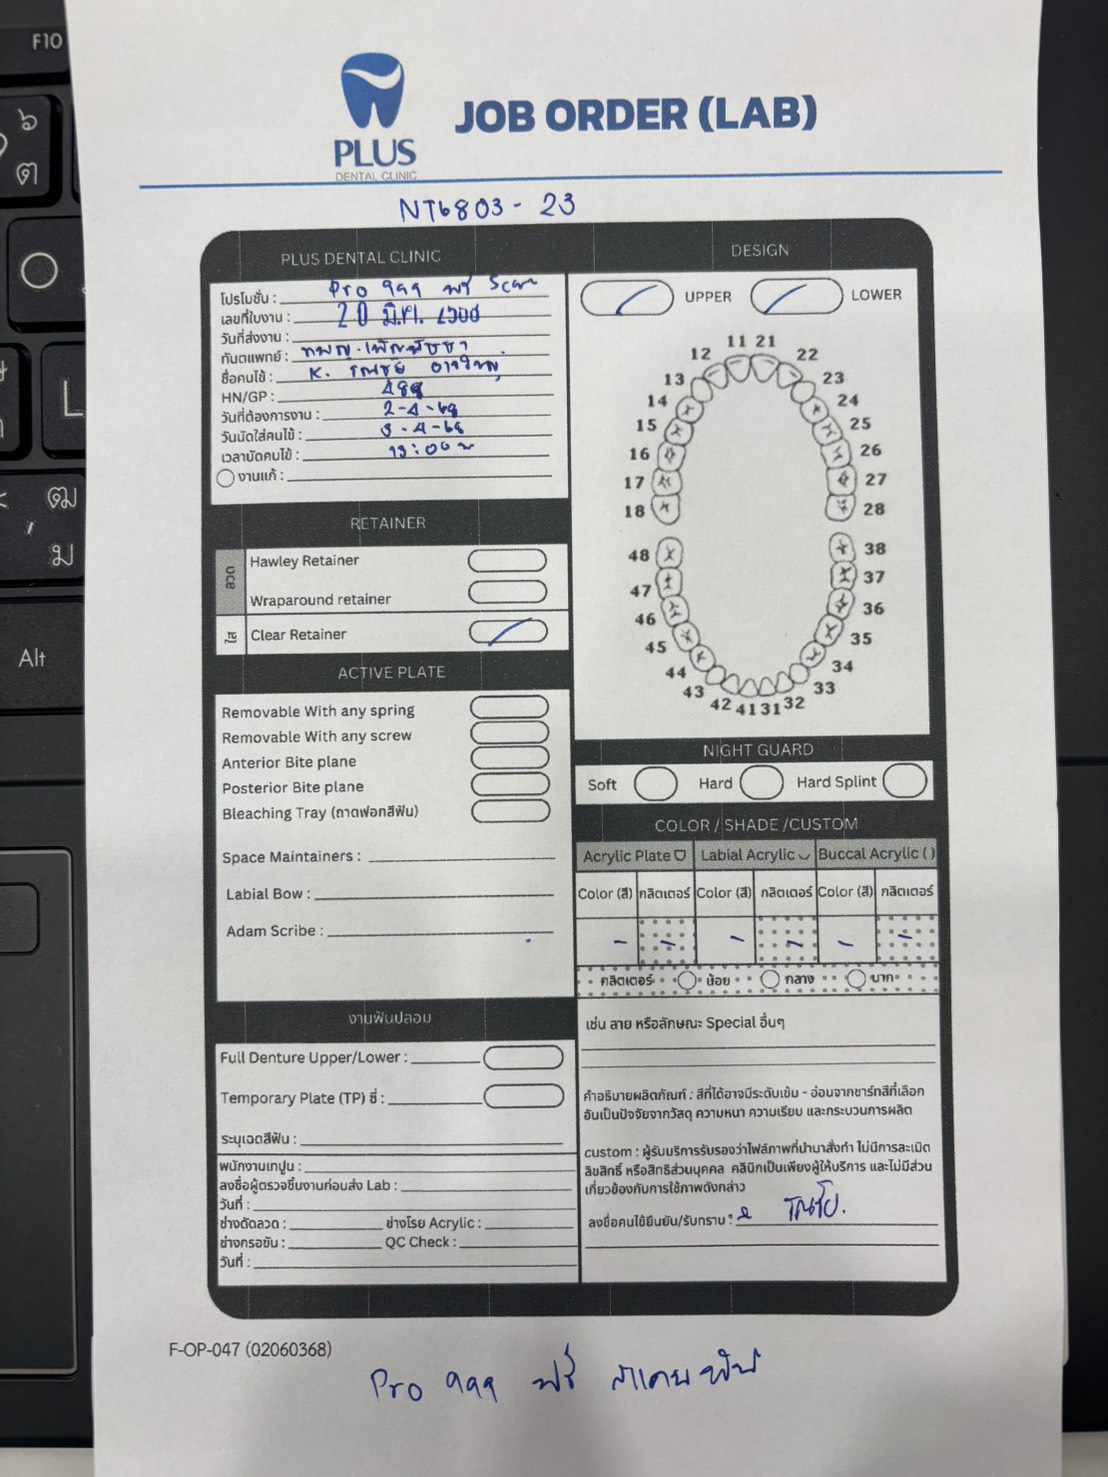 F10
ุ6
ต
Alt
PLUS
DENTAL CLINIC
JOB ORDER (LAB)
NT6803-23
PLUS DENTAL CLINIC
โปรโมชั่น : Pro 999 ฟรี Scan
เลขที่ใบงาน : 20 มี.ค. 2568
วันที่ส่งงาน :
ทันตแพทย์ : ทพญ.
ชื่อคนไข้ : K.
HN/GP : 489
วันที่ต้องการงาน : 2-4-68
วันนัดใส่คนไข้ : 3-4-68
เวลานัดคนไข้ : 13:00 น
งานแก้ :
RETAINER
ลวด
Hawley Retainer
Wraparound retainer
ใส
Clear Retainer
ACTIVE PLATE
Removable With any spring
Removable With any screw
Anterior Bite plane
Posterior Bite plane
Bleaching Tray (ถาดฟอกสีฟัน)
Space Maintainers :
Labial Bow :
Adam Scribe :
งานฟันปลอม
Full Denture Upper/Lower :
Temporary Plate (TP) ซี่ :
ระบุเฉดสีฟัน :
พนักงานเทปูน :
ลงชื่อผู้ตรวจชิ้นงานก่อนส่ง Lab :
วันที่ :
ช่างดัดลวด : ช่างโรย Acrylic :
ช่างกรอขัน : QC Check :
วันที่ :
DESIGN
UPPER LOWER
11 21
12 22
13 23
14 24
15 25
16 26
17 27
18 28
48 38
47 37
46 36
45 35
44 34
43 33
42 41 31 32
NIGHT GUARD
Soft Hard Hard Splint
COLOR / SHADE /CUSTOM
Acrylic Plate Labial Acrylic Buccal Acrylic ( )
Color (สี) กลิตเตอร์ Color (สี) กลิตเตอร์ Color (สี) กลิตเตอร์
- - - - - -
กลิตเตอร์ น้อย กลาง มาก
เช่น ลาย หรือลักษณะ Special อื่นๆ
คำอธิบายผลิตภัณฑ์ : สีที่ได้อาจมีระดับเข้ม - อ่อนจากชาร์ทสีที่เลือก
อันเป็นปัจจัยจากวัสดุ ความหนา ความเรียบ และกระบวนการผลิต
custom : ผู้รับบริการรับรองว่าไฟล์ภาพที่นำมาสั่งทำ ไม่มีการละเมิด
ลิขสิทธิ์ หรือสิทธิส่วนบุคคล คลินิกเป็นเพียงผู้ให้บริการ และไม่มีส่วน
เกี่ยวข้องกับการใช้ภาพดังกล่าว
ลงชื่อคนไข้ยืนยัน/รับทราบ :
F-OP-047 (02060368)
Pro 999 ฟรี สแกนฟัน